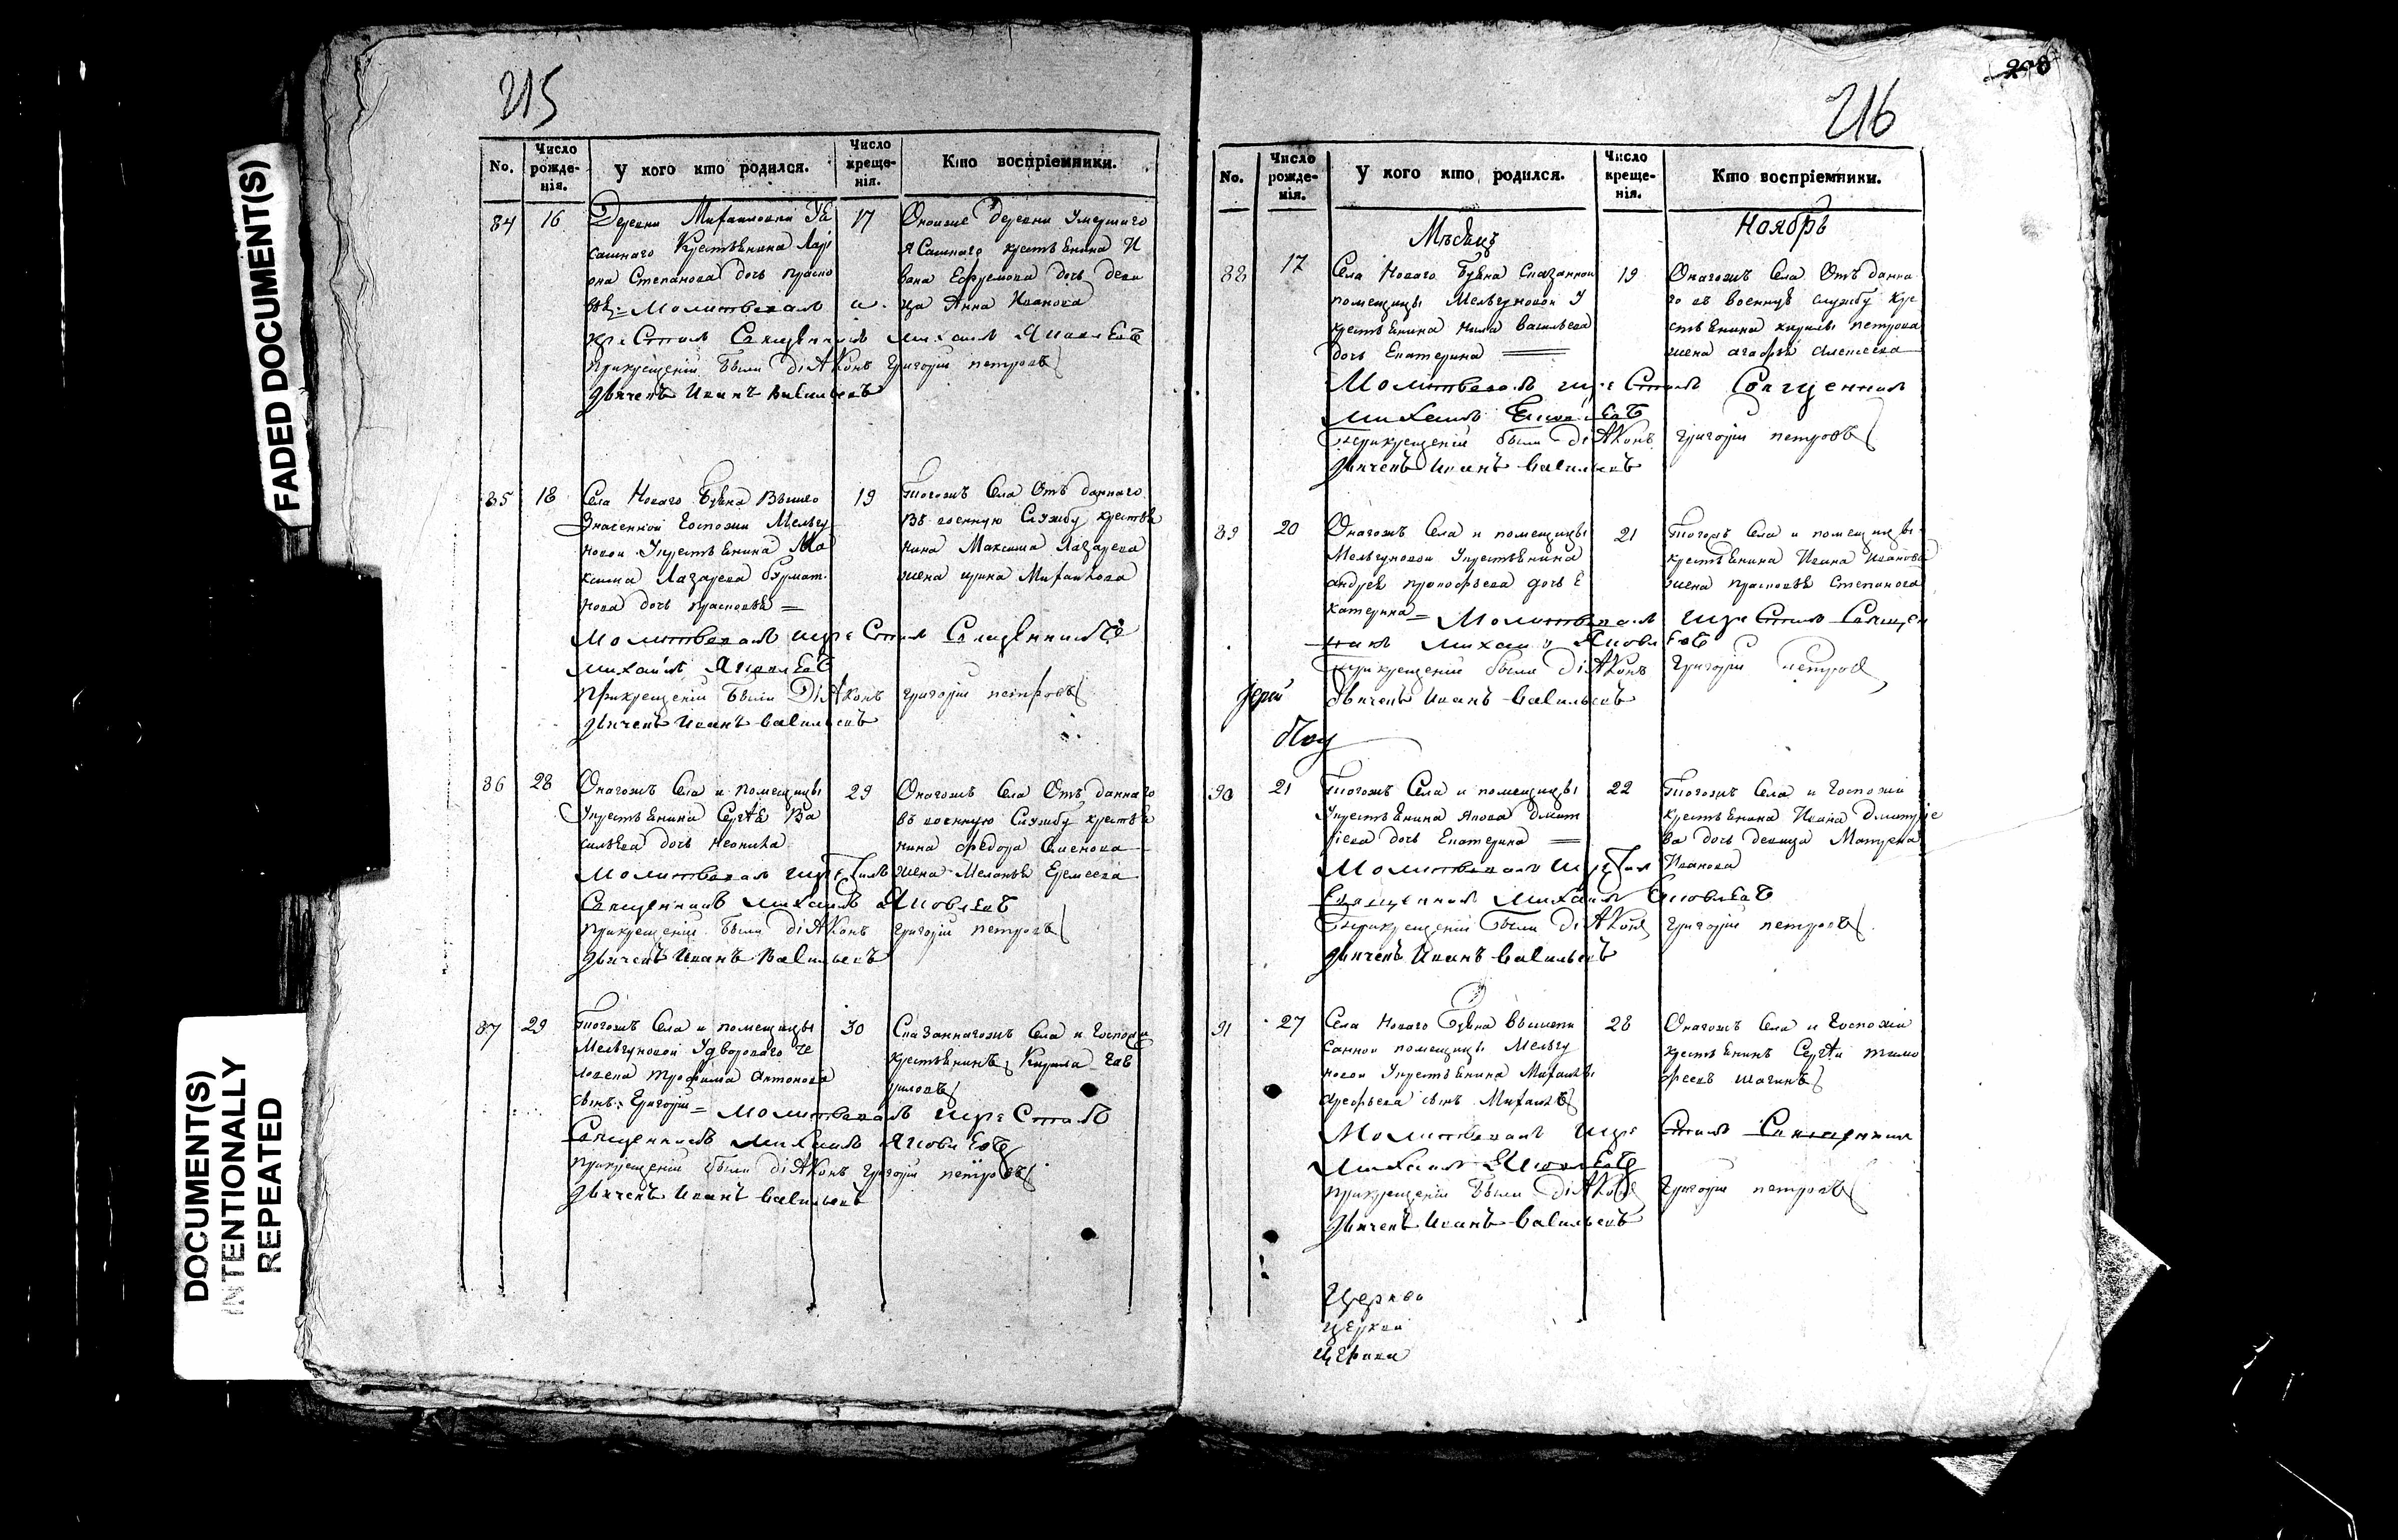 FADED DOCUMENT(S)
DOCUMENT(S)
INTENTIONALLY
REPEATED
215
No.
Число рожде-нія.
У кого кто родился.
Число креще-нія.
Кто воспріемники.
84 16 17
Деревни Михайловки
сашнаго Крестьянина
она Степанова дочь праско
вья = Молитвовал и
крестилъ Священникъ Михаилъ Яковлевъ
При крещеніи были діАконъ григорій петровъ
дьячекъ Иванъ Васильевъ
Оноиже деревни умершаго
Ясашнаго крестьянина И
вана Ефремова дочь деви
ца Анна Иванова
85 18 19
Села Новаго Буяна Выше
значенной Госпожи Мельгу
новой у крестьянина Ма
ксима Лазарева
нова дочь прасковья =
Молитвовалъ и крестилъ Священникъ
Михаилъ Яковлевъ
При крещеніи были ДіАконъ григорій петровъ
дьячекъ Иванъ Васильевъ
Тогожъ Села Отъ даннаго
въ военную Службу крестья
нина Максима Лазарева
жена ирина Михайлова
86 28 29
Онагожъ Села и помещицы
У крестьянина Сергѣя Ва
сильева дочь Неонила
Молитвовалъ и крестилъ
Священникъ Михаилъ Яковлевъ
При крещеніи были діАконъ григорій петровъ
дьячекъ Иванъ Васильевъ
Онагожъ Села Отъ даннаго
въ военную Службу крестья
нина федора Семенова
жена Меланья Еремеева
87 29 30
Тогожъ Села и помещицы
Мельгуновой У двороваго че
ловека трофима антонова
сынъ Григорій = Молитвовалъ и крестилъ
Священникъ Михаилъ Яковлевъ
При крещеніи были діАконъ григорій петровъ
дьячекъ Иванъ Васильевъ
Сказаннагожъ Села и Госпожи
крестьянинъ Кирила Гав
риловъ
216
No.
Число рожде-нія.
У кого кто родился.
Число креще-нія.
Кто воспріемники.
Мѣсяцъ Ноябрь
88 17 19
Села Новаго Буяна Сказанной
помещицы Мельгуновой У
крестьянина Нила Васильева
дочь Екатерина
Молитвовалъ и крестилъ Священникъ
Михаилъ Яковлевъ
При крещеніи были діАконъ григорій петровъ
дьячекъ Иванъ Васильевъ
Онагожъ Села Отъ данна
го въ военную службу кре
стьянина кирилы петрова
жена агафья алексеева
89 20 21
Онагожъ Села и помещицы
Мельгуновой У крестьянина
андрея прокофьева дочь Е
катерина = Молитвовалъ и крестилъ Священ
никъ Михаилъ Яковлевъ
При крещеніи были діАконъ григорій петровъ
дьячекъ Иванъ Васильевъ
Тогожъ Села и помещицы
крестьянина Ивана Иванова
жена прасковья Степанова
90 21 22
Тогожъ Села и помещицы
У крестьянина Якова дмит
ріева дочь Екатерина
Молитвовалъ и крестилъ
Священникъ Михаилъ Яковлевъ
При крещеніи были діАконъ григорій петровъ
дьячекъ Иванъ Васильевъ
Тогожъ Села и Госпожи
крестьянина Ивана дмитріе
ва дочь девица Матрена
Иванова
91 27 28
Села Новаго Буяна вышепи
санной помещицы Мельгу
новой У крестьянина Михаилы
арефьева сынъ Михаилъ
Молитвовалъ и крестилъ Священникъ
Михаилъ Яковлевъ
При крещеніи были діАконъ григорій петровъ
дьячекъ Иванъ Васильевъ
Онагожъ Села и Госпожи
крестьянинъ Сергѣй тимо
феевъ шагинъ